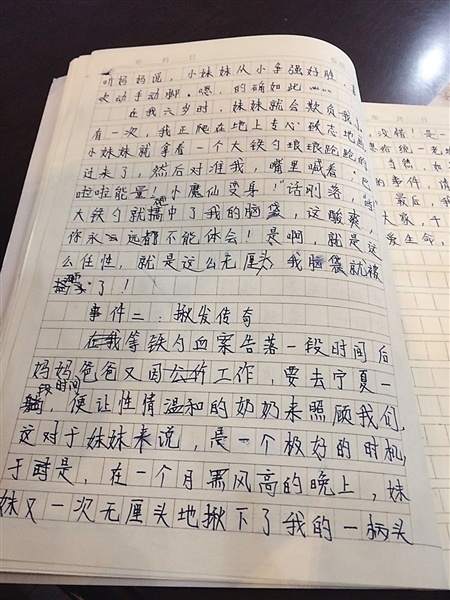 年 月 日
听妈妈说，小妹妹从小争强好胜，喜
欢动手动脚。嗯，的确如此……
在我六岁时，妹妹就会欺负我
有一次，我正爬在地上专心致志地画
小妹妹就拿着一个大铁勺踉踉跄跄的
过来了，然后对准我，嘴里喊着：巴
啦啦能量！小魔仙变身！"话刚落，
大铁勺就搞中了我的脑袋，这酸爽，
你永远都不能体会！是啊，就是这
么任性，就是这么无厘头，我脑袋就被
了！
事件二：揪发传奇
在等铁勺血案告落一段时间后
妈妈爸爸又因工作，要去宁夏一
段时间，便让性情温和的奶奶来照顾我们，
这对于妹妹来说，是一个极好的时机，
于是，在一个月黑风高的晚上，妹
妹又一次无厘头地揪下了我的一柄头
没错！是一
当然，如
的事件，
最后，我
大家，千
爱生命，